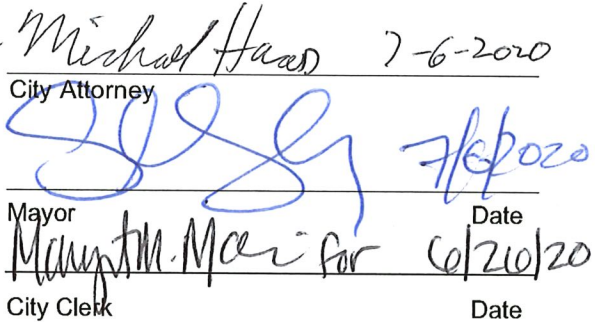 Michael Haas 7-6-2020
City Attorney
7/6/2020
Mayor Date
for 6/26/20
City Clerk Date